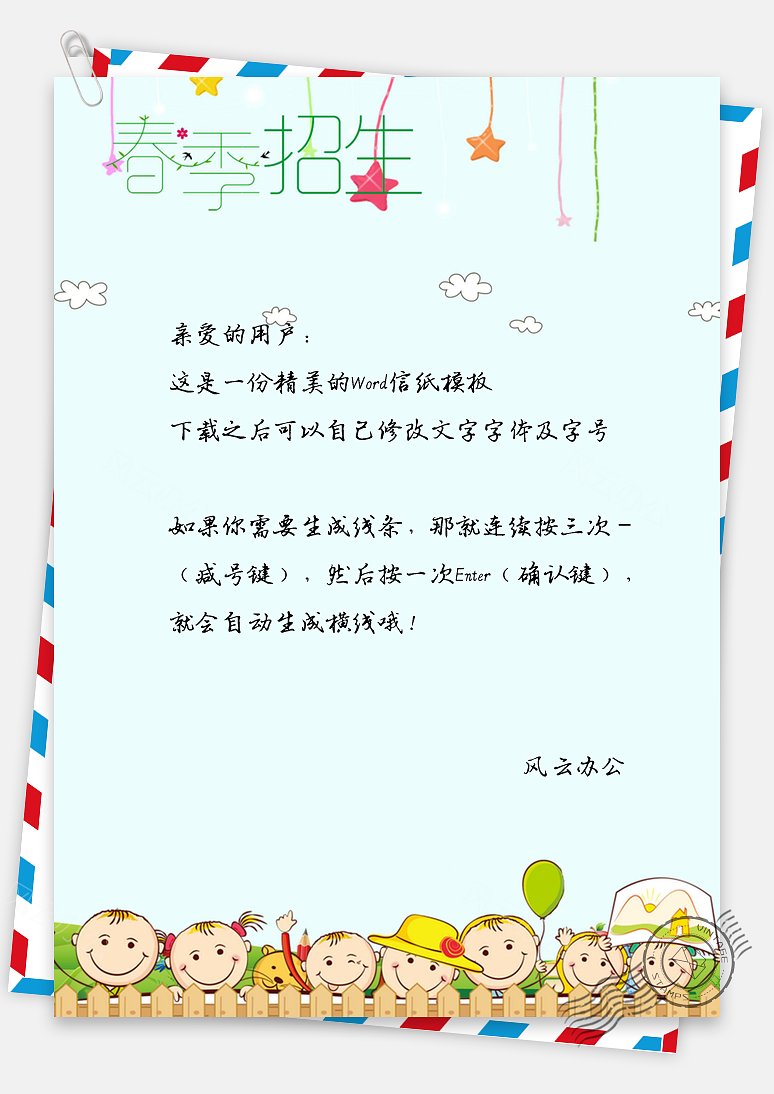 春季招生
亲爱的用户：
这是一份精美的Word信纸模板
下载之后可以自己修改文字字体及字号
如果你需要生成线条，那就连续按三次－
（减号键），然后按一次Enter（确认键），
就会自动生成横线哦！
风云办公